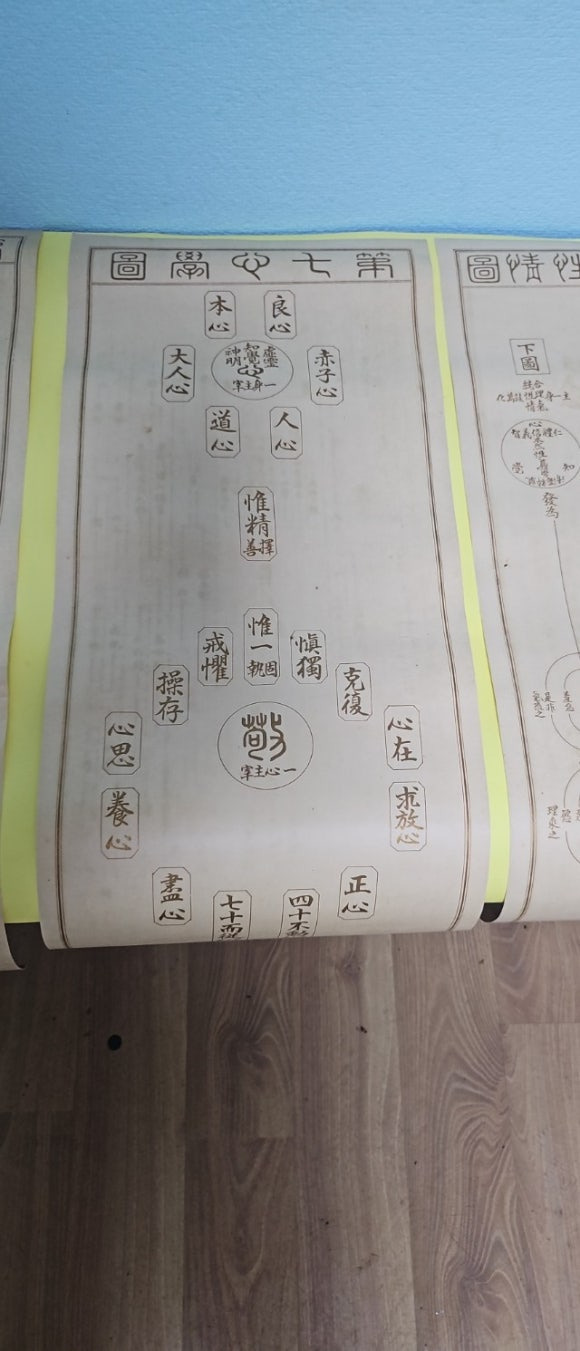 第七心學圖
良心
本心
虛靈
知覺
神明
心
一身主宰
赤子心
大人心
人心
道心
惟精
擇善
惟一
固執
愼獨
戒懼
克復
操存
心在
心思
敬
一心主宰
求放心
養心
正心
盡心
四十不動
七十而從
性情圖
下圖
心
發為